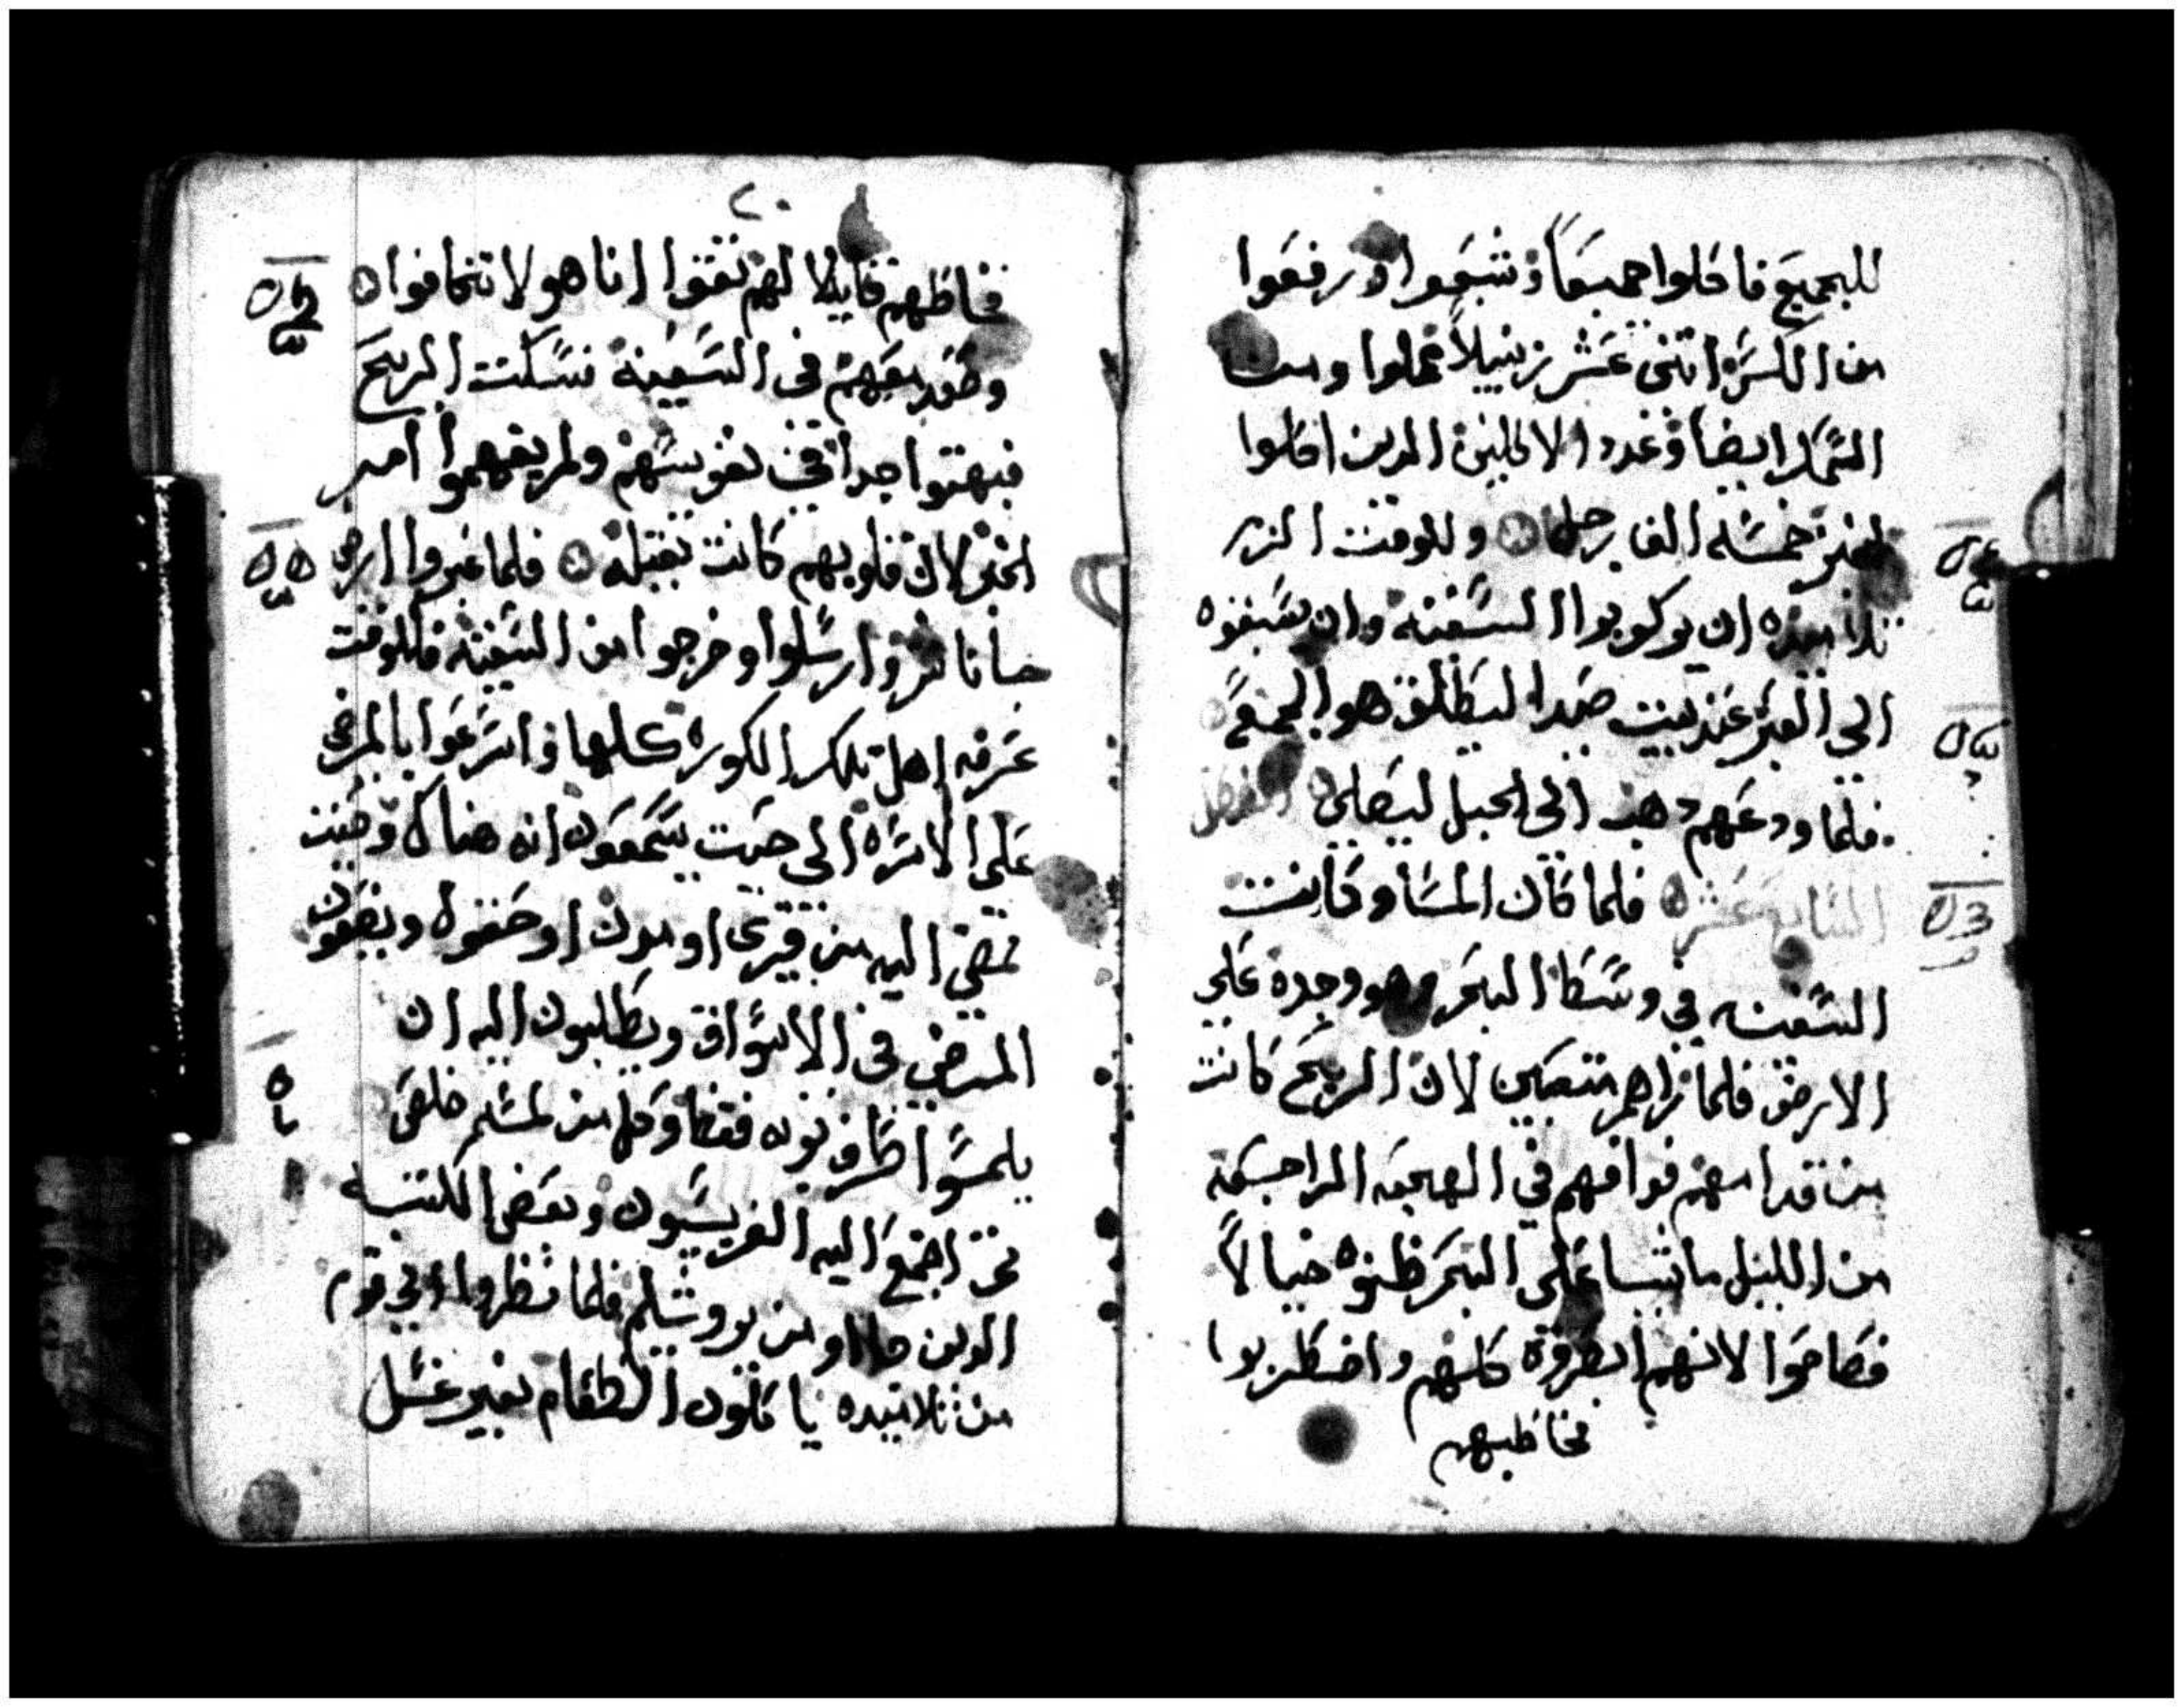 للجميع فاكلوا جميعاً وشبعوا ورفعوا
من الكسر اثنى عشر زنبيلاً مملوا ومن
السمك ايضا وعدد الاكلين الدين اكلوا
الخبز خمسه الف رجل ۞ وللوقت الزم
تلاميذه ان يركوبوا السفينه وان يسبقوه
الى العبر عند بيت صيدا ليطلق هو الجمع
فلما ودعهم دهب الى الجبل ليصلى ۞ الفصل
السابع عشر ۞ فلما كان المسا وكانت
السفينه في وسط البحر وهو وحده على
الارض فلما نراهم متعبين لان الريح كانت
من قدامهم فوافهم في الهجعه الرابعه
من الليل ماشيا على البحر ظنوه خيالاً
فصاحوا لانهم ابصروه كلهم واضطربوا
فخاطبهم
٢٠
فخاطبهم قايلا لهم ثقوا انا هو لا تخافوا ۞
وصعد معهم في السفينه فسكنت الريح
فبهتوا جدا في نفوسهم ولم يفهموا امر
الخبز لان قلوبهم كانت ثقيله ۞ فلما عبروا ارض
جاناشر وارسلوا وخرجوا من السفينه فللوقت
عرفه اهل تلك الكوره كلها واسرعوا بالمرضى
على الاسره الى حيت يسمعون انه هناك وحيت
تمضى اليه من قرى او مدن او حقول ويضعون
المرضى في الاسواق ويطلبون اليه ان
يلمسوا طرف ثوبه فقط وكل من لمسه خلص
ثم اجتمع اليه الفريسيون وبعض الكتبه
الدين جااو من يروشليم فلما نظروا الى قوم
من تلاميده ياكلون الطعام بغير غسل